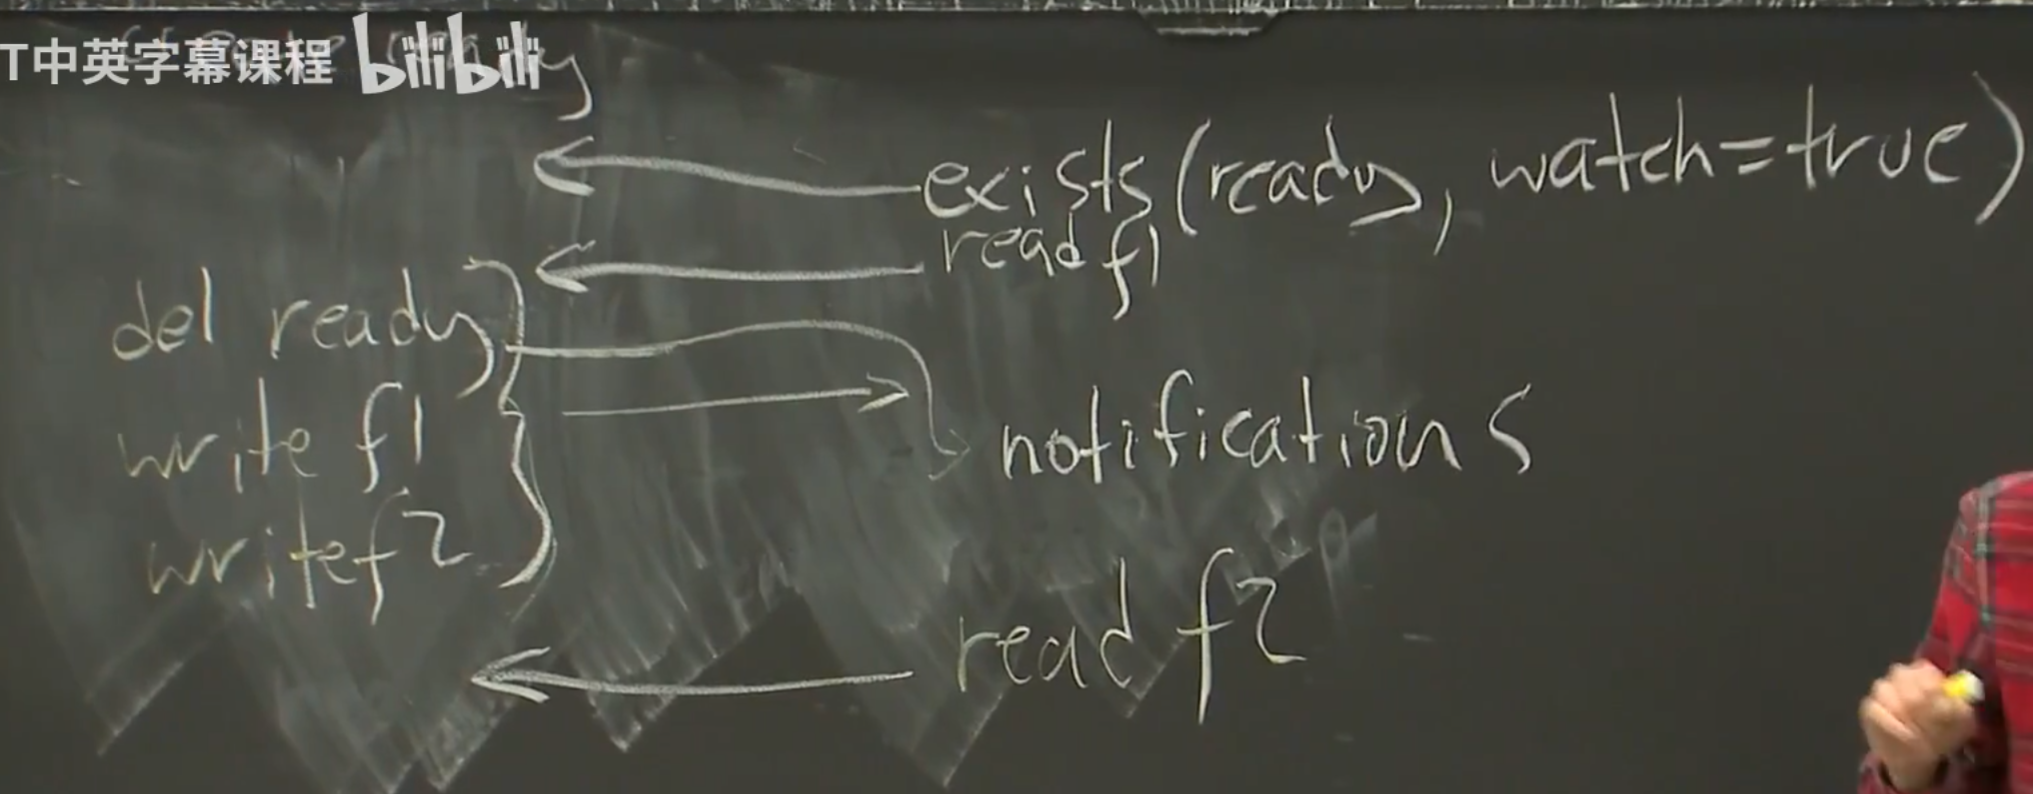 T中英字幕课程 bilibili
exists(ready, watch=true)
read f1
del ready
write f1
notifications
write f2
read f2